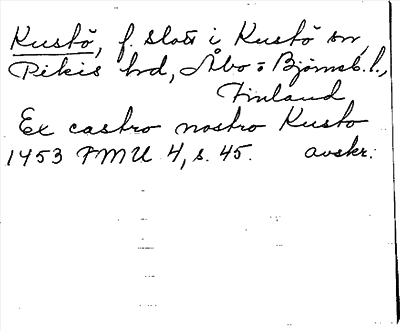 Kustö, f. slott i Kustö sn,
Pikis hd, Åbo o Björneb. l.,
Finland
Ex castro nostro Kusto
1453 FMU 4, s. 45. avskr.